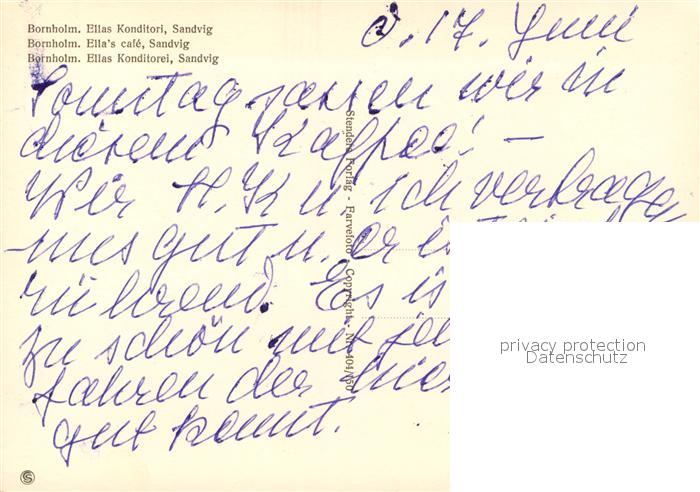 Bornholm. Ellas Konditori, Sandvig
Bornholm. Ella's café, Sandvig
Bornholm. Ellas Konditorei, Sandvig
d. 17. Juni
Sonntag sassen wir in
diesem Kaffee! –
Wir H. K u. ich vertragen
uns gut u. er ist
rührend. Es is
zu schön mit je
fahren der
gut kennt.
Stenders Forlag - Farvefoto - Copyright - Nr. 404/150
privacy protection
Datenschutz